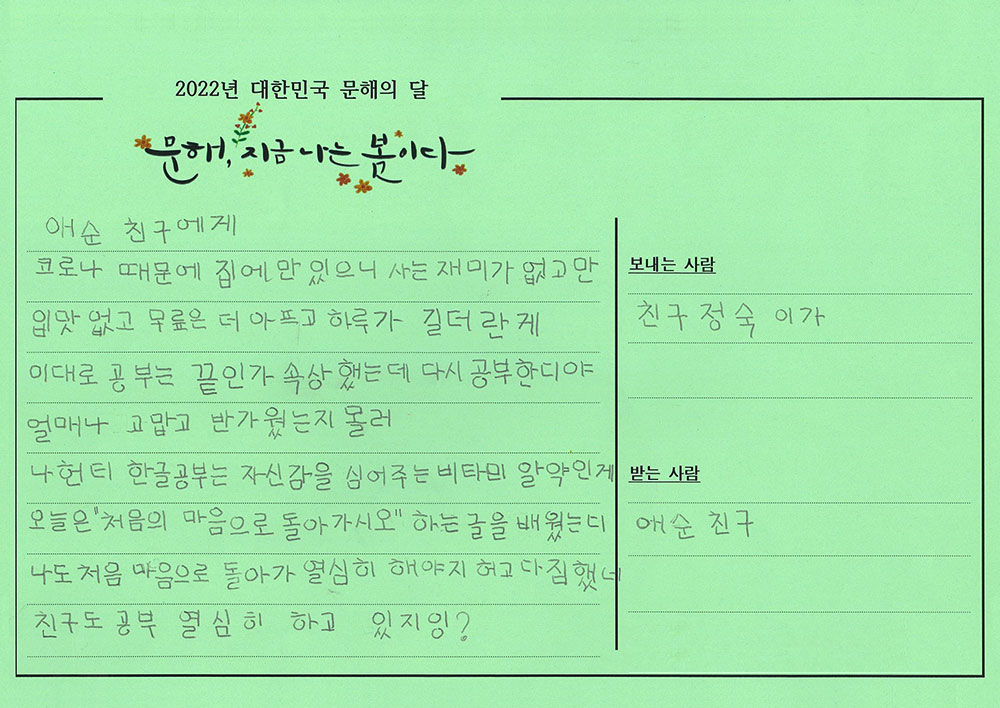 2022년 대한민국 문해의 달
문해, 지금 나는 봄이다
애순 친구에게
코로나 때문에 집에만 있으니 사는 재미가 없고만
입맛 없고 무릎은 더 아프고 하루가 길더란게
이대로 공부는 끝인가 속상했는데 다시 공부한디야
얼매나 고맙고 반가웠는지 몰러
나헌티 한글공부는 자신감을 심어주는 비타미 알약인게
오늘은"처음의 마음으로 돌아가시오" 하는글을 배웠는디
나도처음 마음으로 돌아가 열심히 해야지 허고다짐했네
친구도 공부 열심히 하고 있지잉?
보내는 사람
친구정숙이가
받는 사람
애순 친구